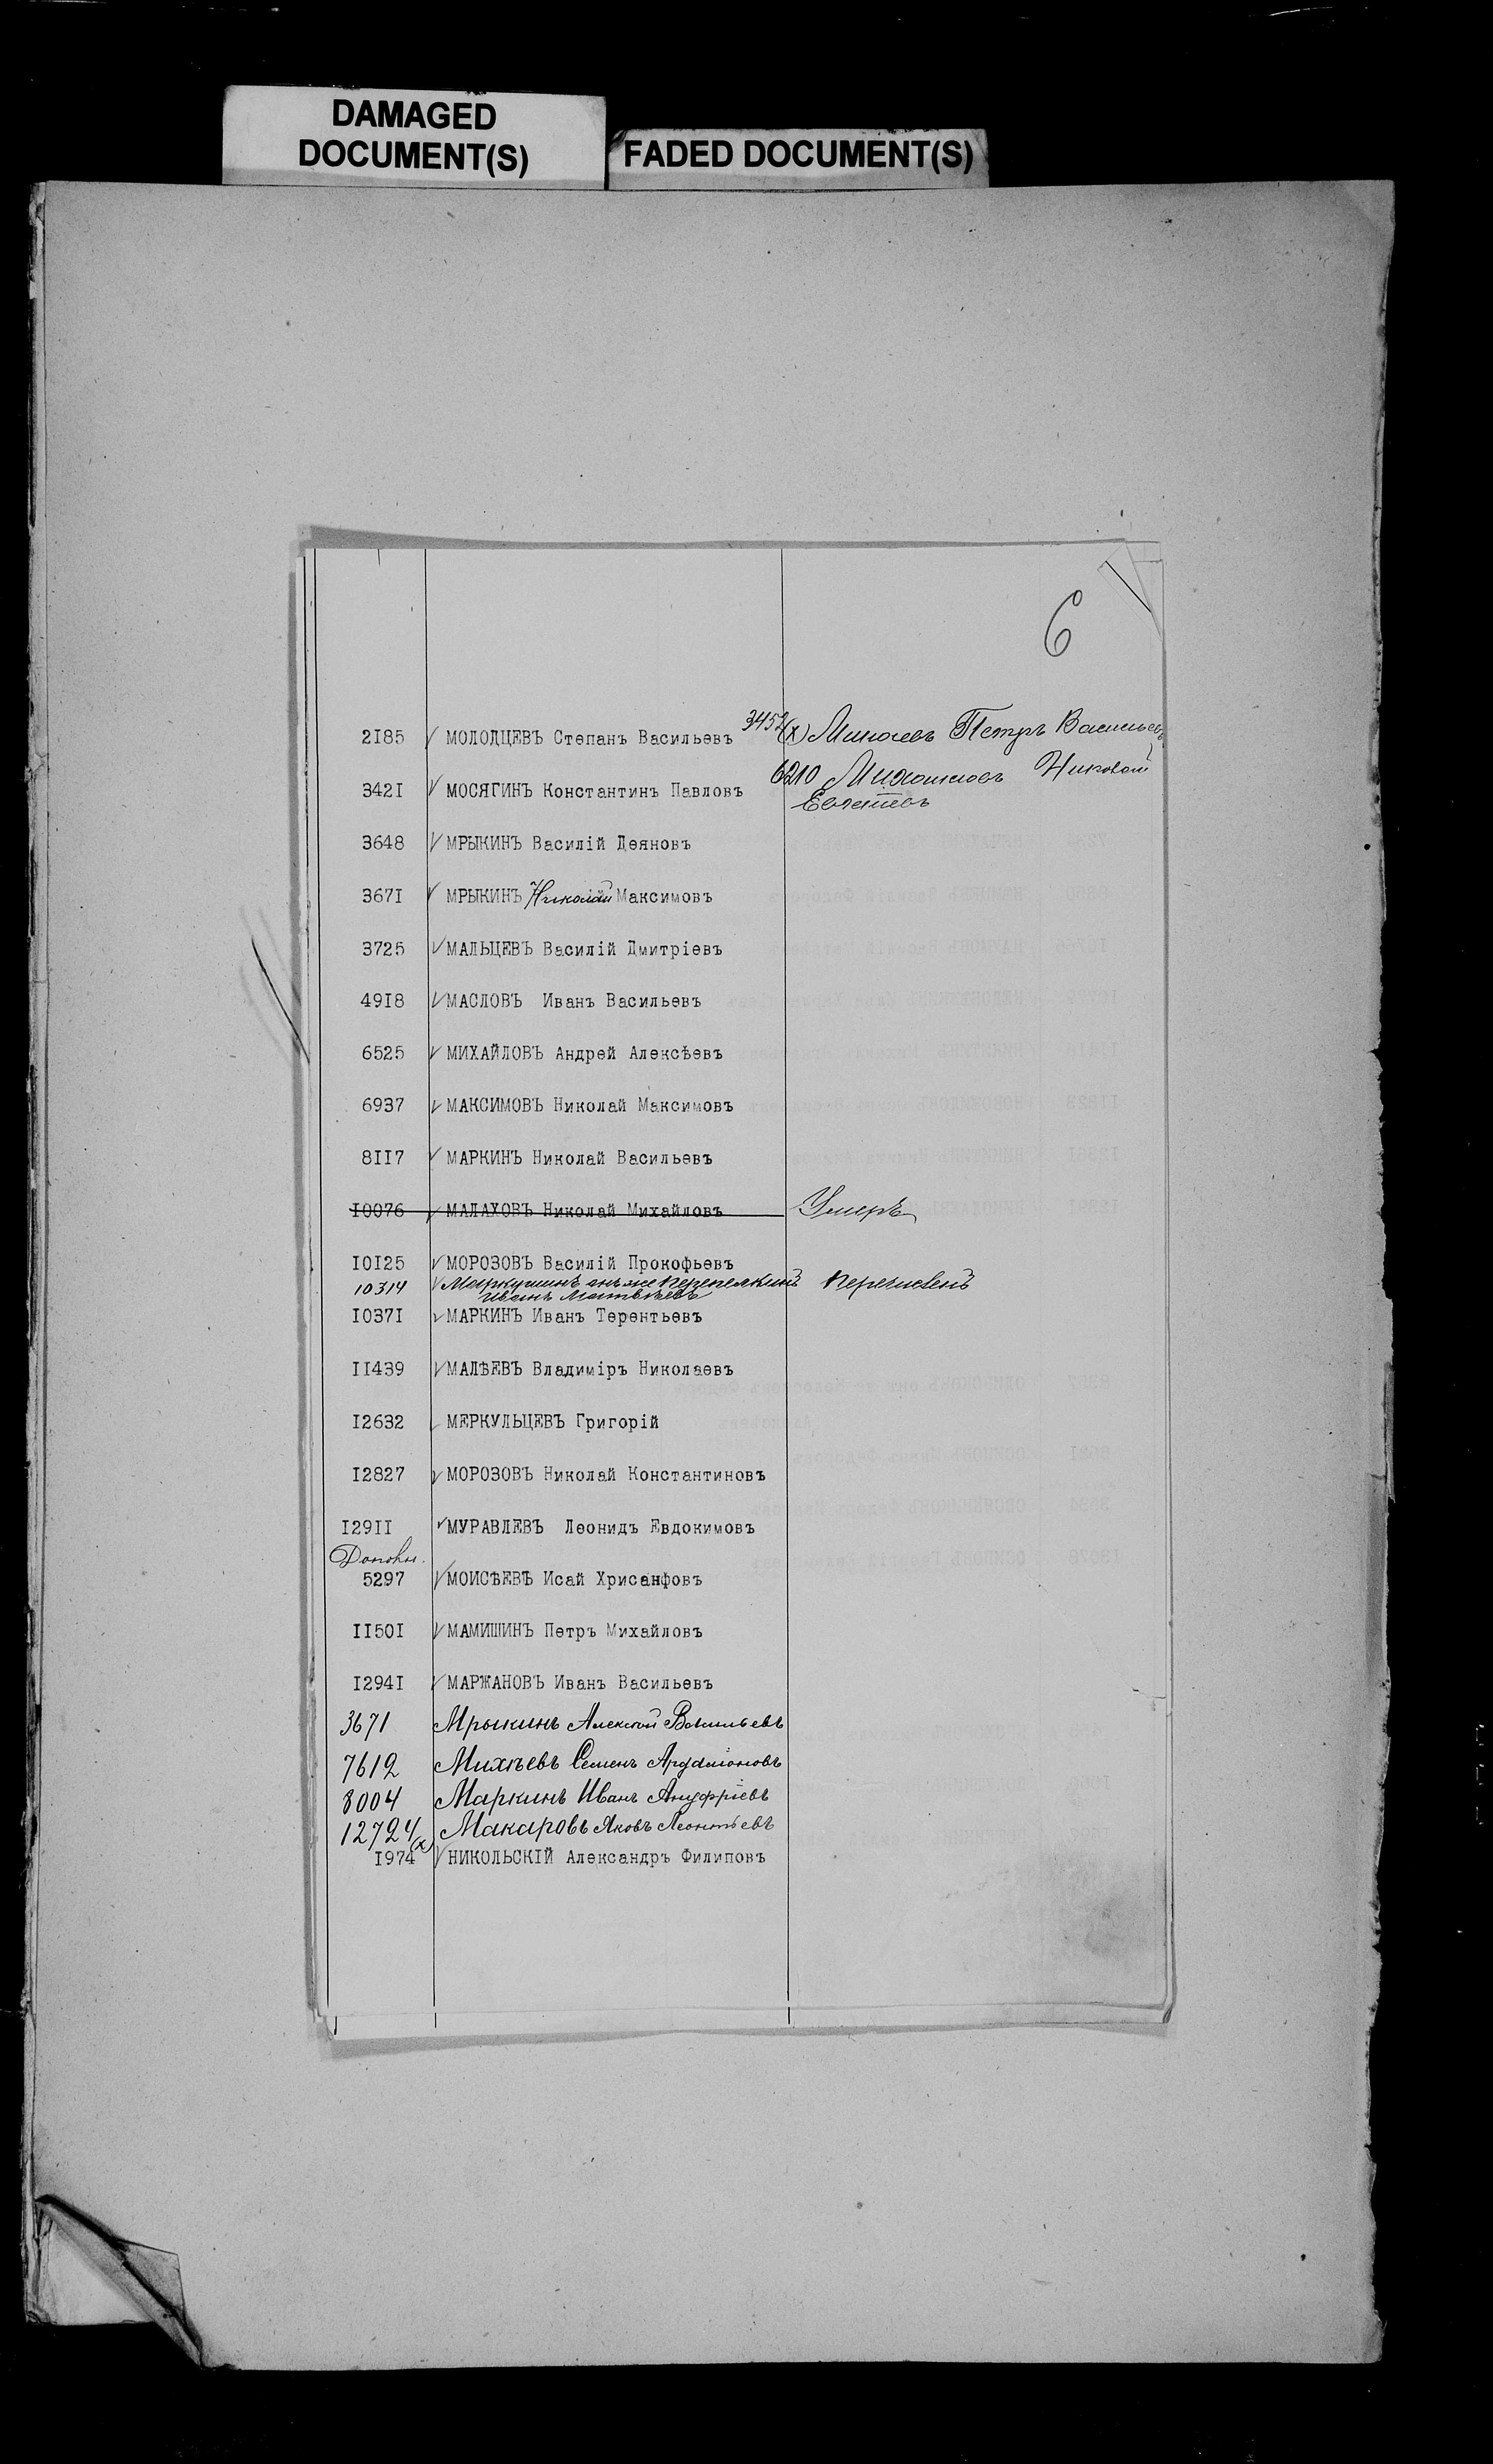 DAMAGED
DOCUMENT(S)
FADED DOCUMENT(S)
6
2185 МОЛОДЦЕВЪ Степанъ Васильевъ
3452 (х) Минаевъ Петръ Васильевъ
3421 МОСЯГИНЪ Константинъ Павловъ
6210 Николай
3648 МРЫКИНЪ Василій Деяновъ
3671 МРЫКИНЪ Николай Максимовъ
3725 МАЛЬЦЕВЪ Василій Дмитріевъ
4918 МАСЛОВЪ Иванъ Васильевъ
6525 МИХАЙЛОВЪ Андрей Алексѣевъ
6937 МАКСИМОВЪ Николай Максимовъ
8117 МАРКИНЪ Николай Васильевъ
10076 МАЛАХОВЪ Николай Михайловъ Умеръ
10125 МОРОЗОВЪ Василій Прокофьевъ
10314 Маркушинъ онъ же Перепелкинъ
Иванъ Матвѣевъ
Перечисленъ
10371 МАРКИНЪ Иванъ Терентьевъ
11439 МАЛѢЕВЪ Владиміръ Николаевъ
12632 МЕРКУЛЬЦЕВЪ Григорій
12827 МОРОЗОВЪ Николай Константиновъ
12911 МУРАВЛЕВЪ Леонидъ Евдокимовъ
5297 МОИСѢЕВЪ Исай Хрисанфовъ
11501 МАМИШИНЪ Петръ Михайловъ
12941 МАРЖАНОВЪ Иванъ Васильевъ
3671 Мрыкинъ Алексѣй Васильевъ
7612 Михѣевъ Семенъ Ардаліоновъ
8004 Маркинъ Иванъ Ануфріевъ
12724 Макаровъ Яковъ Леонтьевъ
(х)
1974 НИКОЛЬСКІЙ Александръ Филиповъ